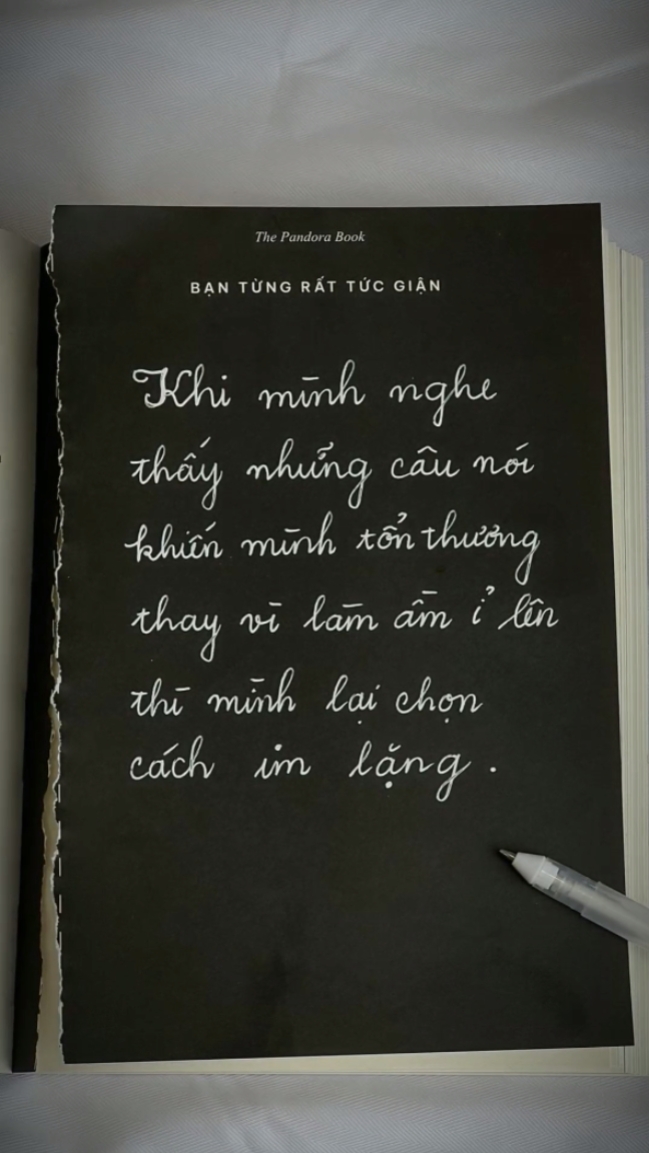 The Pandora Book
BẠN TỪNG RẤT TỨC GIẬN
Khi mình nghe
thấy những câu nói
khiến mình tổn thương
thay vì làm ầm ỉ lên
thì mình lại chọn
cách im lặng.